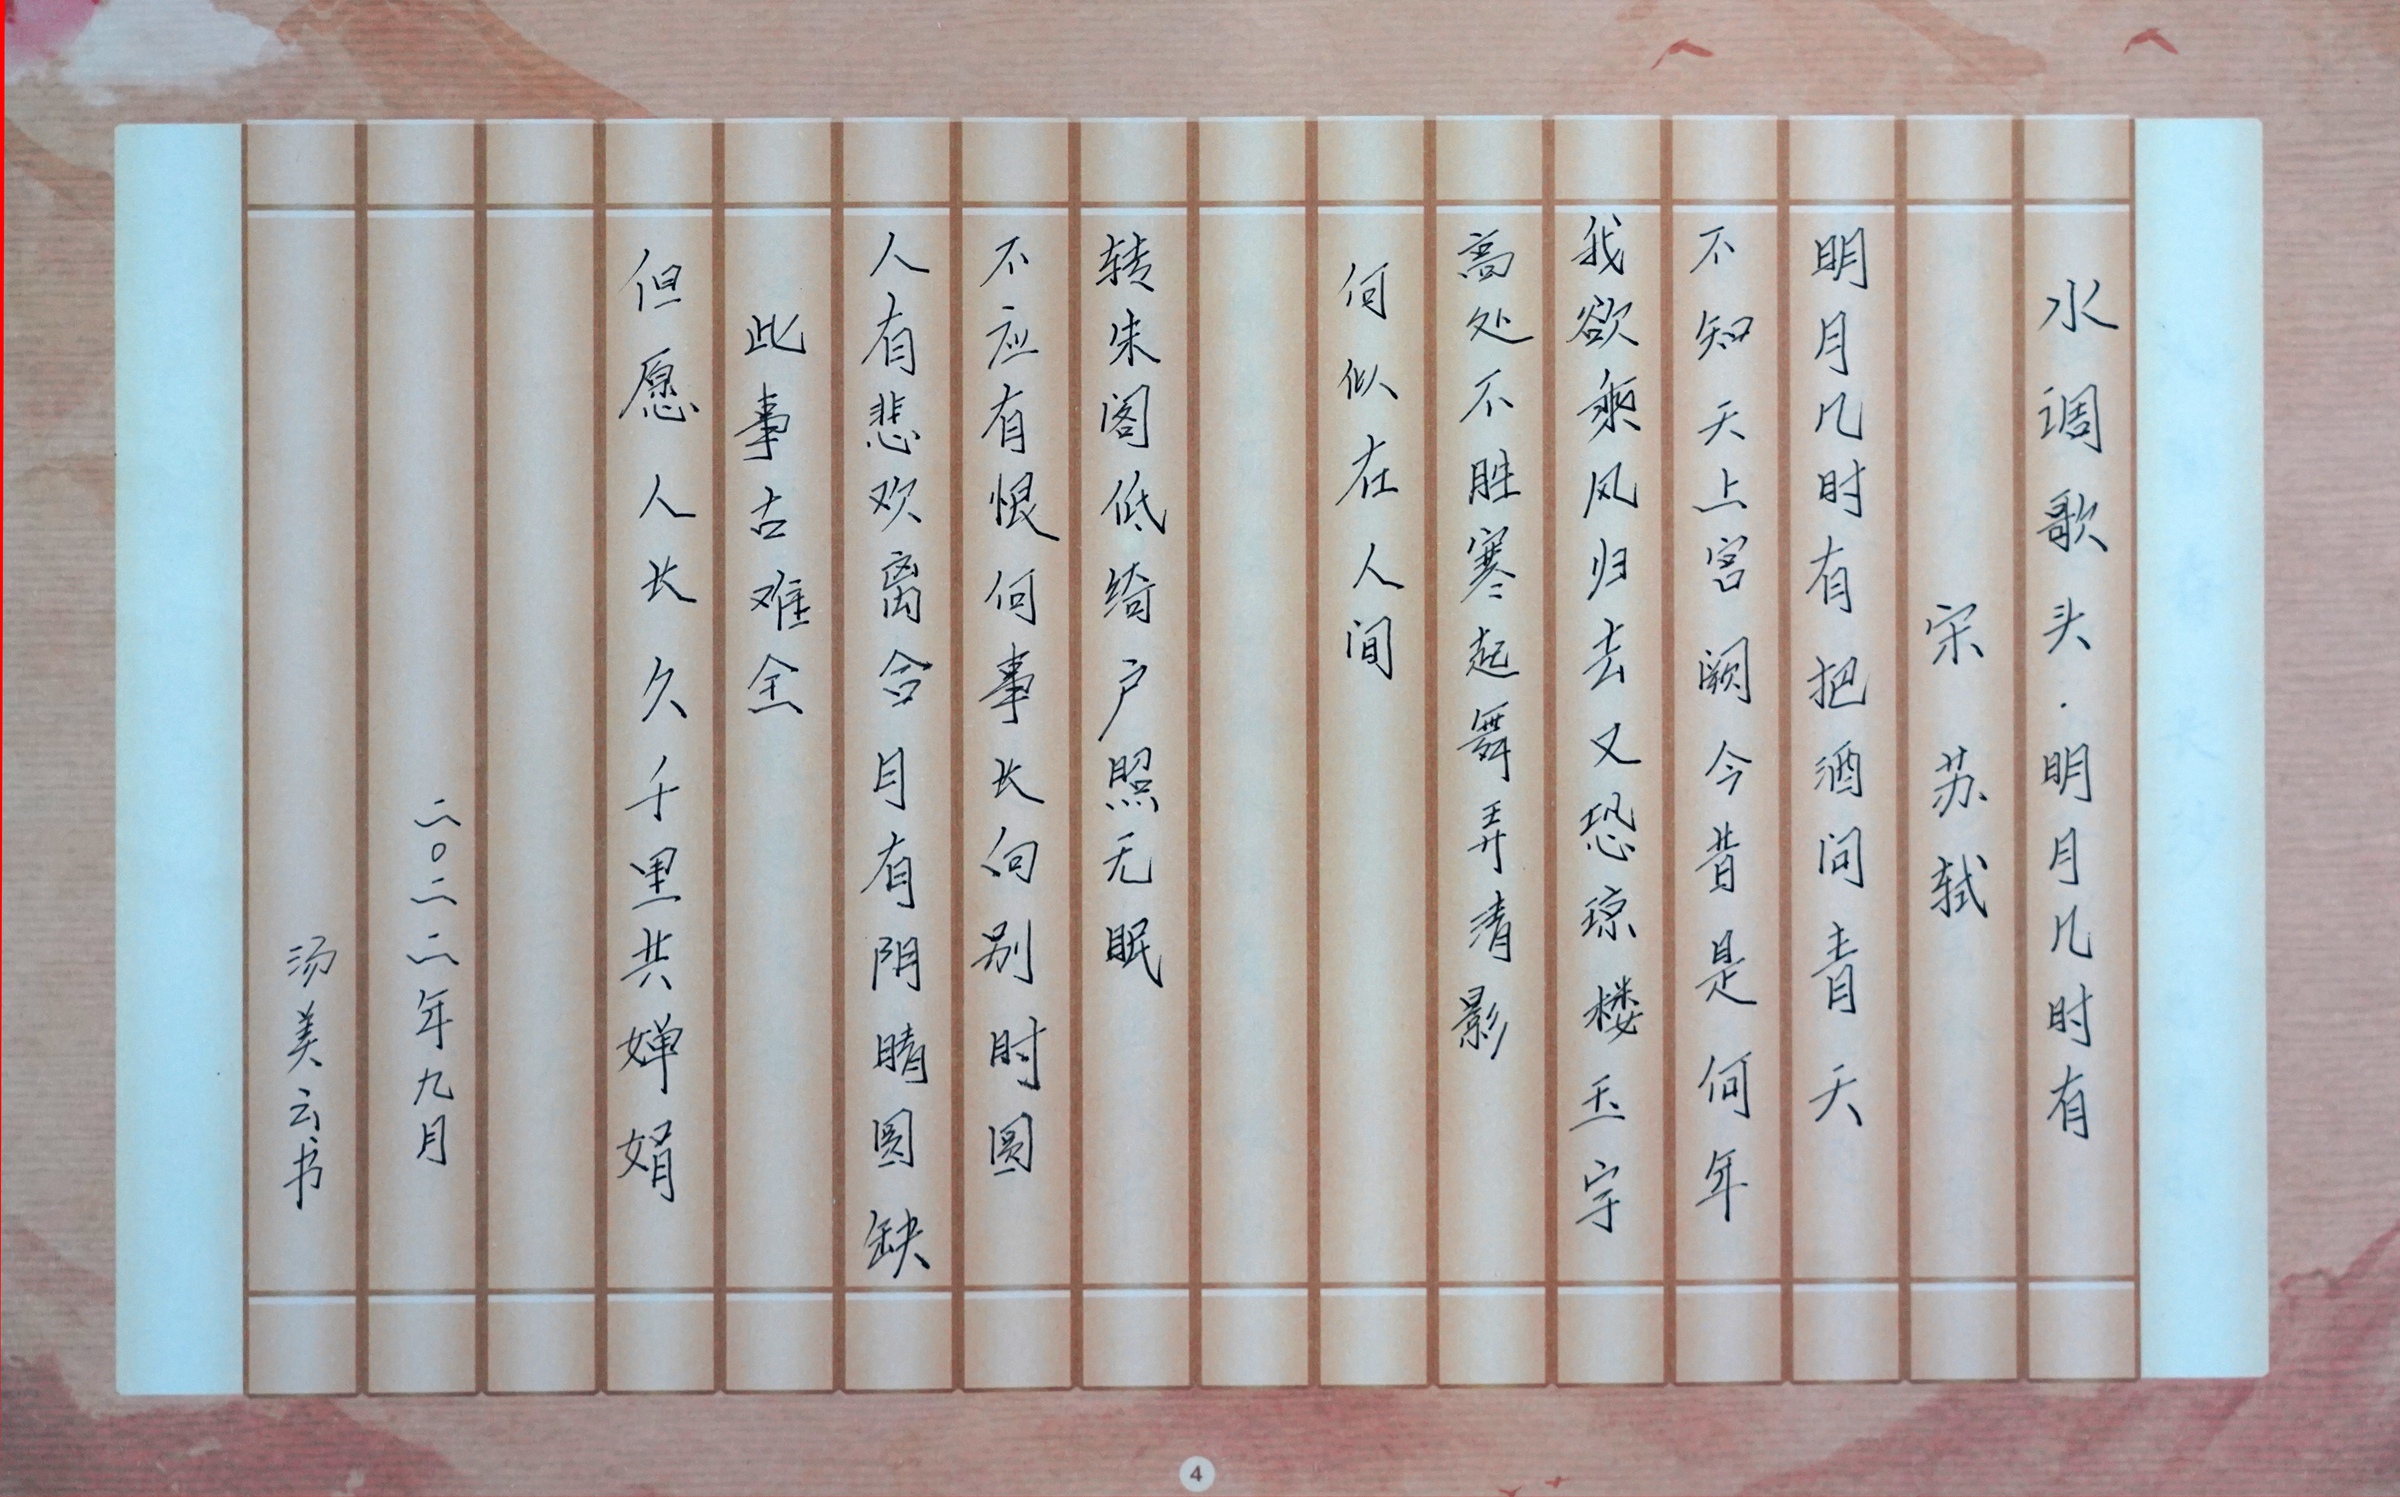 水调歌头·明月几时有
宋 苏轼
明月几时有把酒问青天
不知天上宫阙今昔是何年
我欲乘风归去又恐琼楼玉宇
高处不胜寒起舞弄清影
何似在人间
转朱阁低绮户照无眠
不应有恨何事长向别时圆
人有悲欢离合月有阴晴圆缺
此事古难全
但愿人长久千里共婵娟
二〇二二年九月
汤美云书
4